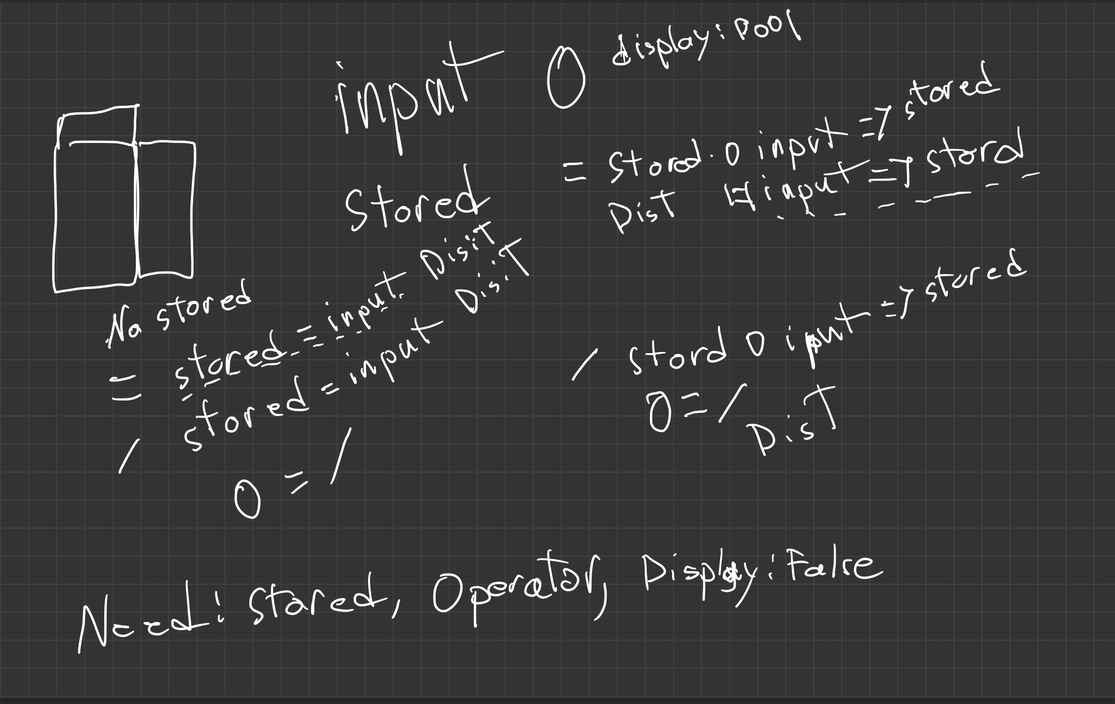 input O display: Bool
= stord. O input => stored
Dist input => stord
stored
No stored
= stored = input. Disit
/ stored = input Disit
O = /
/ stord O iput => stored
O = /
Dist
Need: Stored, Operator, Display: False